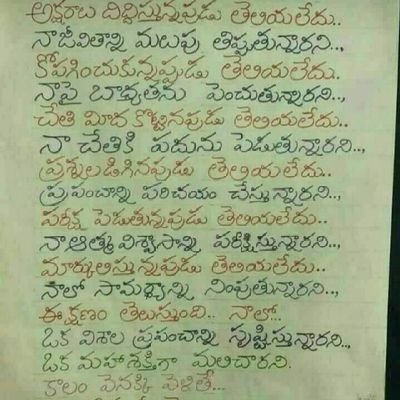 అక్షరాలు దిద్దిస్తున్నపుడు తెలియలేదు..
నా జీవితాన్ని మలుపు తిప్పుతున్నారని..,
కోపగించుకున్నప్పుడు తెలియలేదు..
నాపై బాధ్యతను పెంచుతున్నారని..,
చేతి మీద కొట్టినపుడు తెలియలేదు..
నా చేతికి పదును పెడుతున్నారని..,
ప్రశ్నలడిగినపుడు తెలియలేదు..
ప్రపంచాన్ని పరిచయం చేస్తున్నారని..,
పరీక్ష పెడుతున్నపుడు తెలియలేదు..
నా ఆత్మ విశ్వాసాన్ని పరీక్షిస్తున్నారని..,
మార్కులిస్తున్నపుడు తెలియలేదు..
నాలో సామర్థ్యాన్ని నింపుతున్నారని..,
ఈ క్షణం తెలుస్తుంది.. నాలో..
ఒక విశాల ప్రపంచాన్ని సృష్టిస్తున్నారని..,
ఒక మహాశక్తిగా మలిచారని.
కాలం వెనక్కి వెళితే...